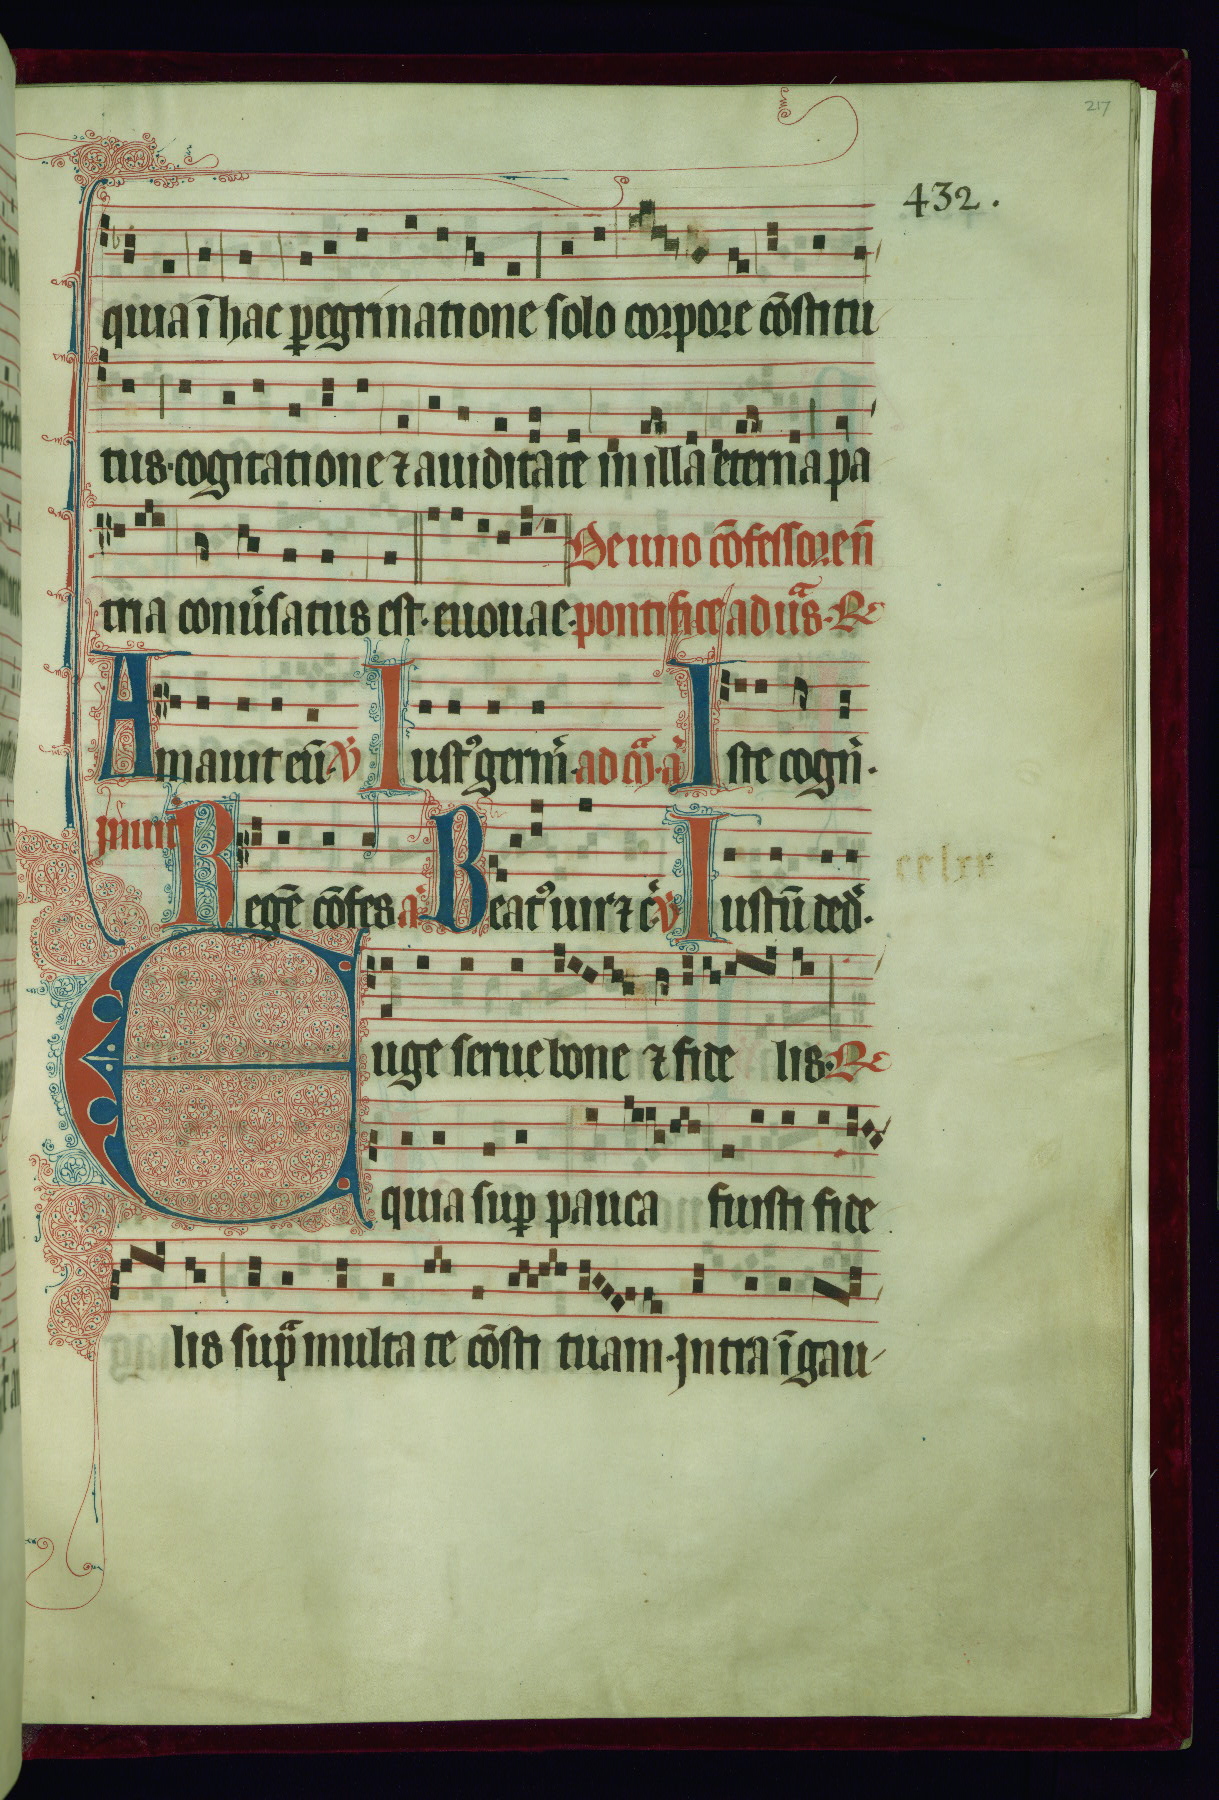 217
432.
quia ī hac ꝑegrinatione solo corpore cōstitu
tus·cogitatione ⁊ auiditate in illa eterna pa
De uno cōfessore nō
tria conũsatus est· euouae·pontifice ad uās·℞
Amauit eū·℣ Iustꝰ germ̄·ad ·a Iste cogn̄·
Inuit
Regē cōfes a Beatꝰ uir ⁊ c̄ ℣ Iustū ded̄·
cclxx
Euge serue bone ⁊ fide lis·℞
quia suꝑ pauca fuisti fide
lis supͣ multa te cōsti tuam·Intra ī gau